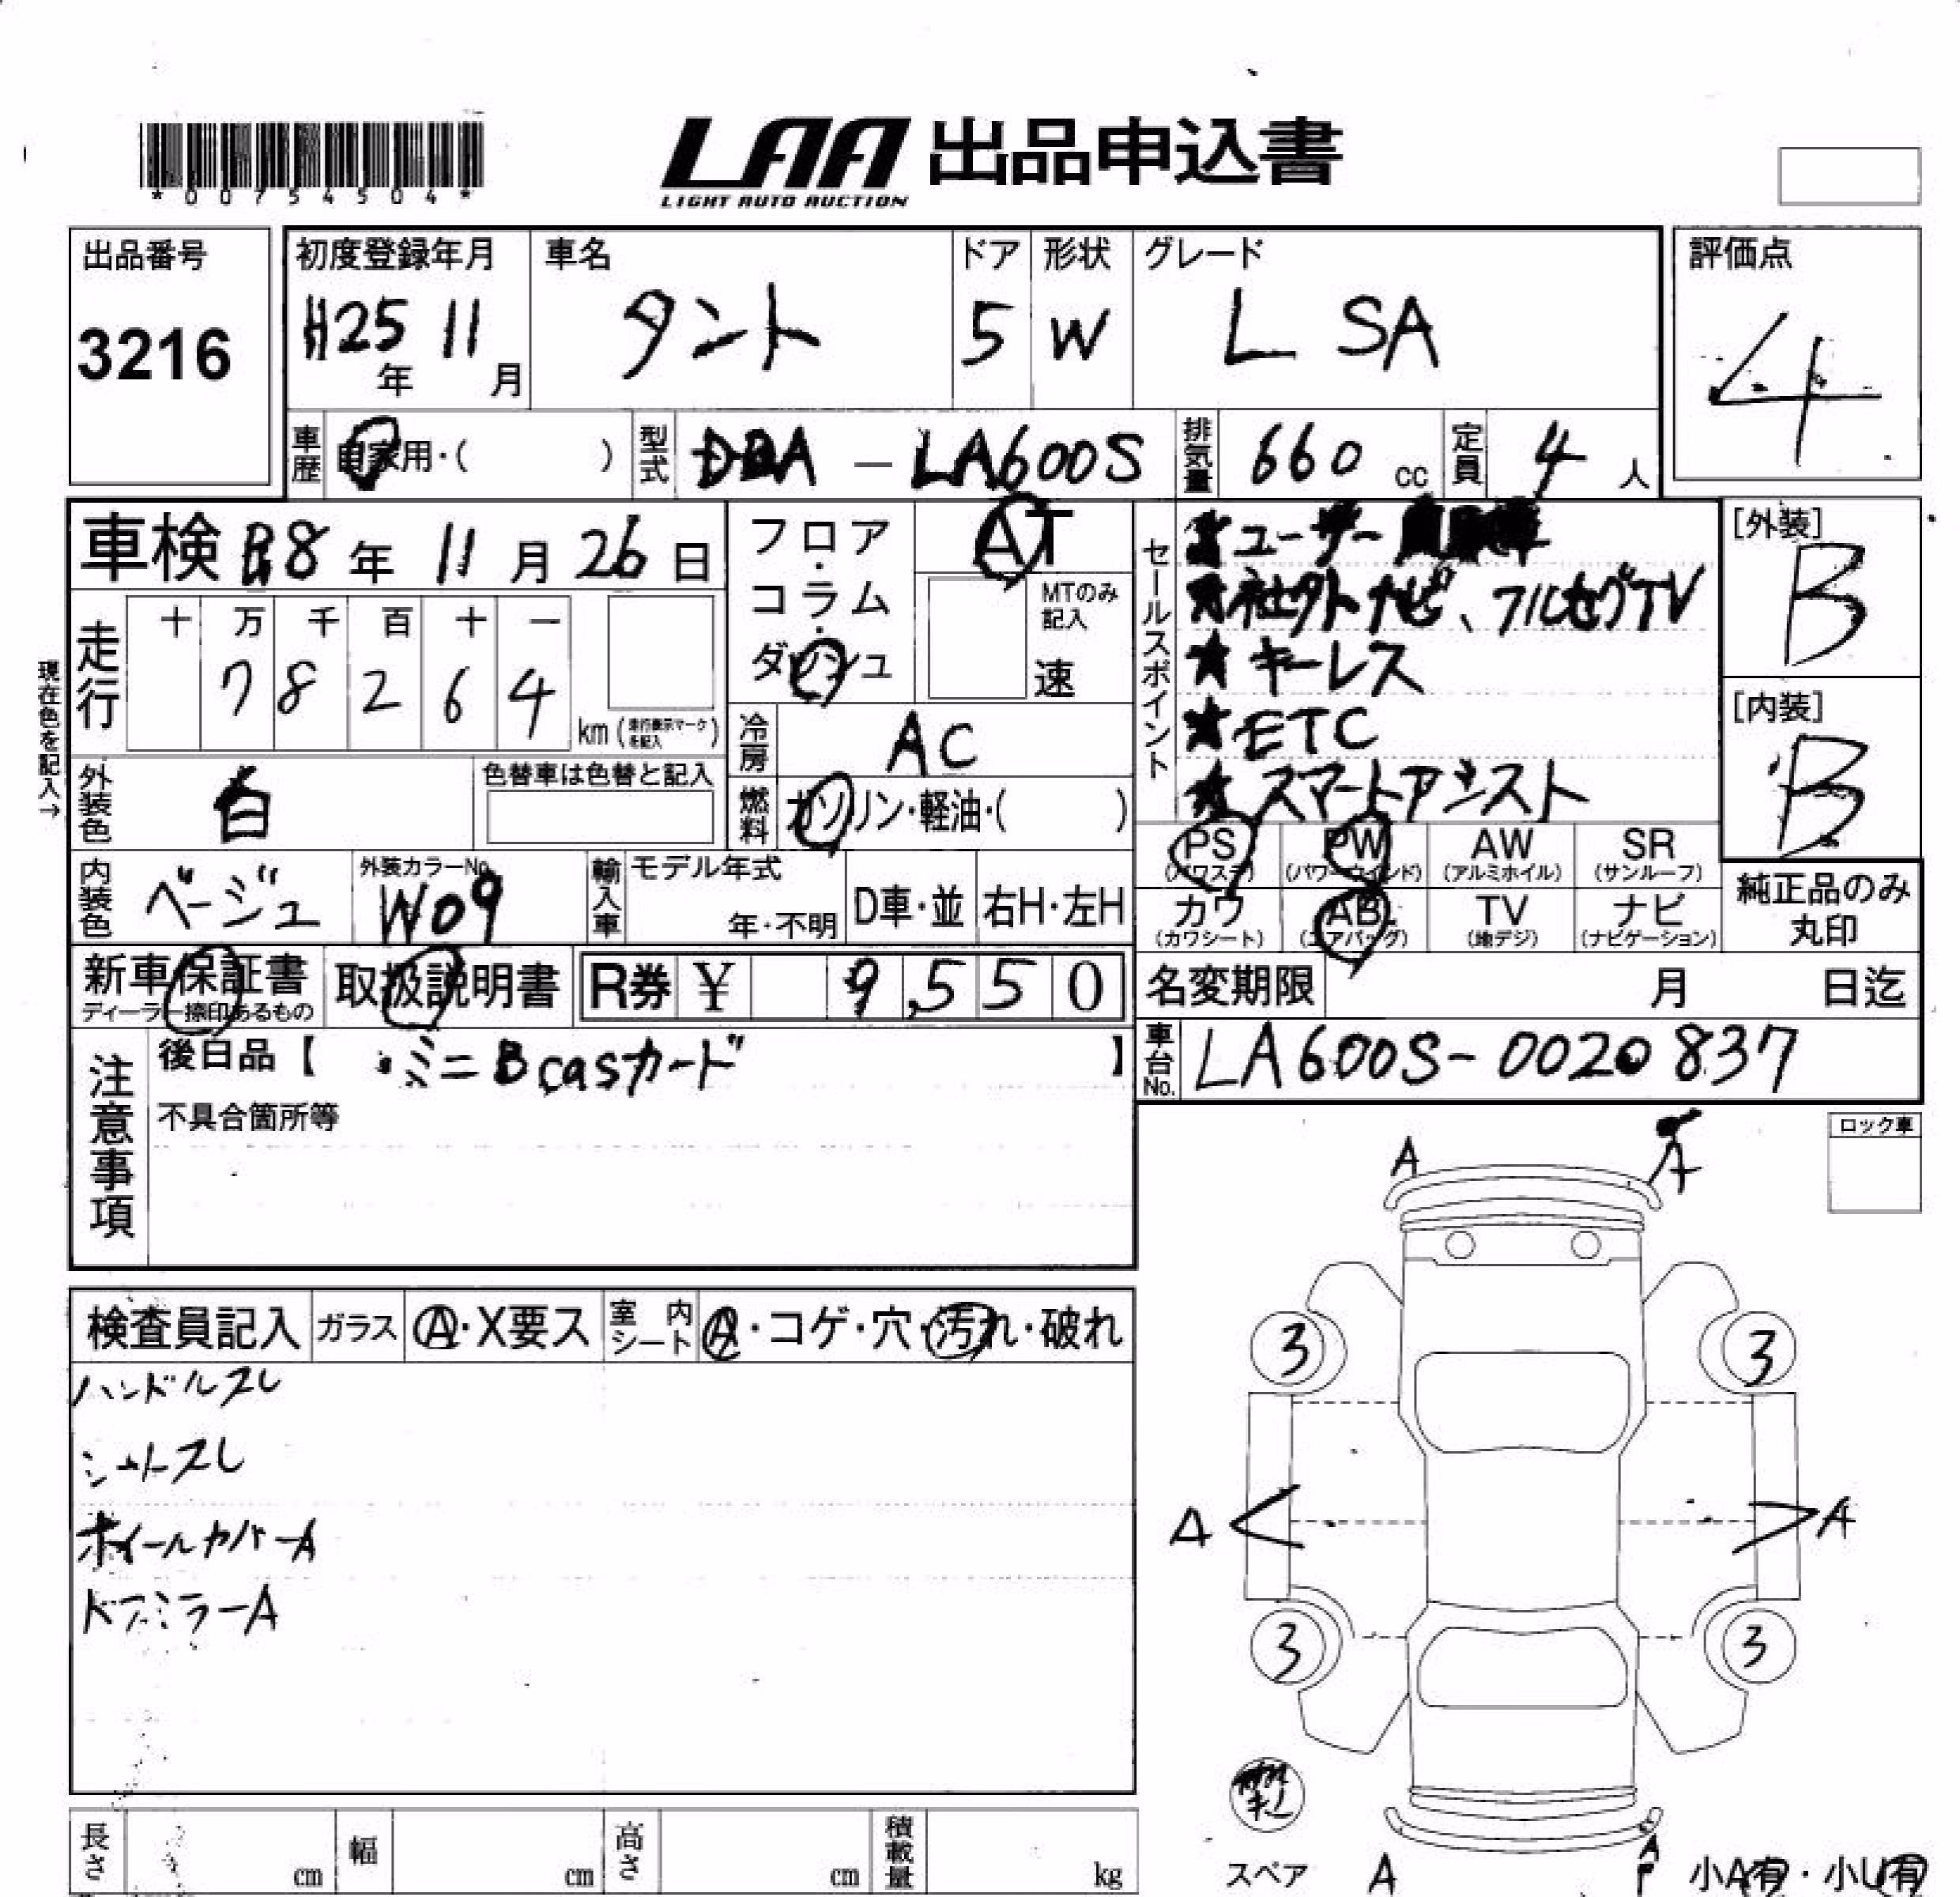 *00754504*
LAA 出品申込書
LIGHT AUTO AUCTION
出品番号
3216
初度登録年月
H25年 11月
車名
タント
ドア
5
形状
W
グレード
L SA
評価点
4
車歴
自家用・( )
型式
DBA - LA600S
排気量
660 cc
定員
4 人
車検 R8年 11月 26日
フロア・コラム・ダッシュ
AT
MTのみ記入
速
セールスポイント
★ユーザー
★社外ナビ、フルセグTV
★キーレス
★ETC
★スマートアシスト
[外装]
B
[内装]
B
現在色を記入→
走行
十 万 千 百 十 一
7 8 2 6 4
km(走行表示マークを記入)
冷房
AC
外装色
白
色替車は色替と記入
燃料
ガソリン・軽油・( )
PS (パワステ)
PW (パワーウインド)
AW (アルミホイル)
SR (サンルーフ)
カワ (カワシート)
AB (エアバッグ)
TV (地デジ)
ナビ (ナビゲーション)
純正品のみ
丸印
内装色
ベージュ
外装カラーNo.
W09
輸入車
モデル年式
年・不明
D車・並
右H・左H
新車保証書
ディーラー捺印あるもの
取扱説明書
R券 ¥ 9,550
名変期限 月 日迄
注意事項
後日品【 ミニBcasカード 】
不具合箇所等
車台No.
LA600S-0020837
ロック車
A A
検査員記入
ガラス
A・X要ス
室内シート
A・コゲ・穴・汚れ・破れ
ハンドルスレ
シートスレ
ホイールカバーA
ドアミラーA
3 3
A A
3 3
スペア
A
A
P
小A有・小U有
長さ cm
幅 cm
高さ cm
積載量 kg